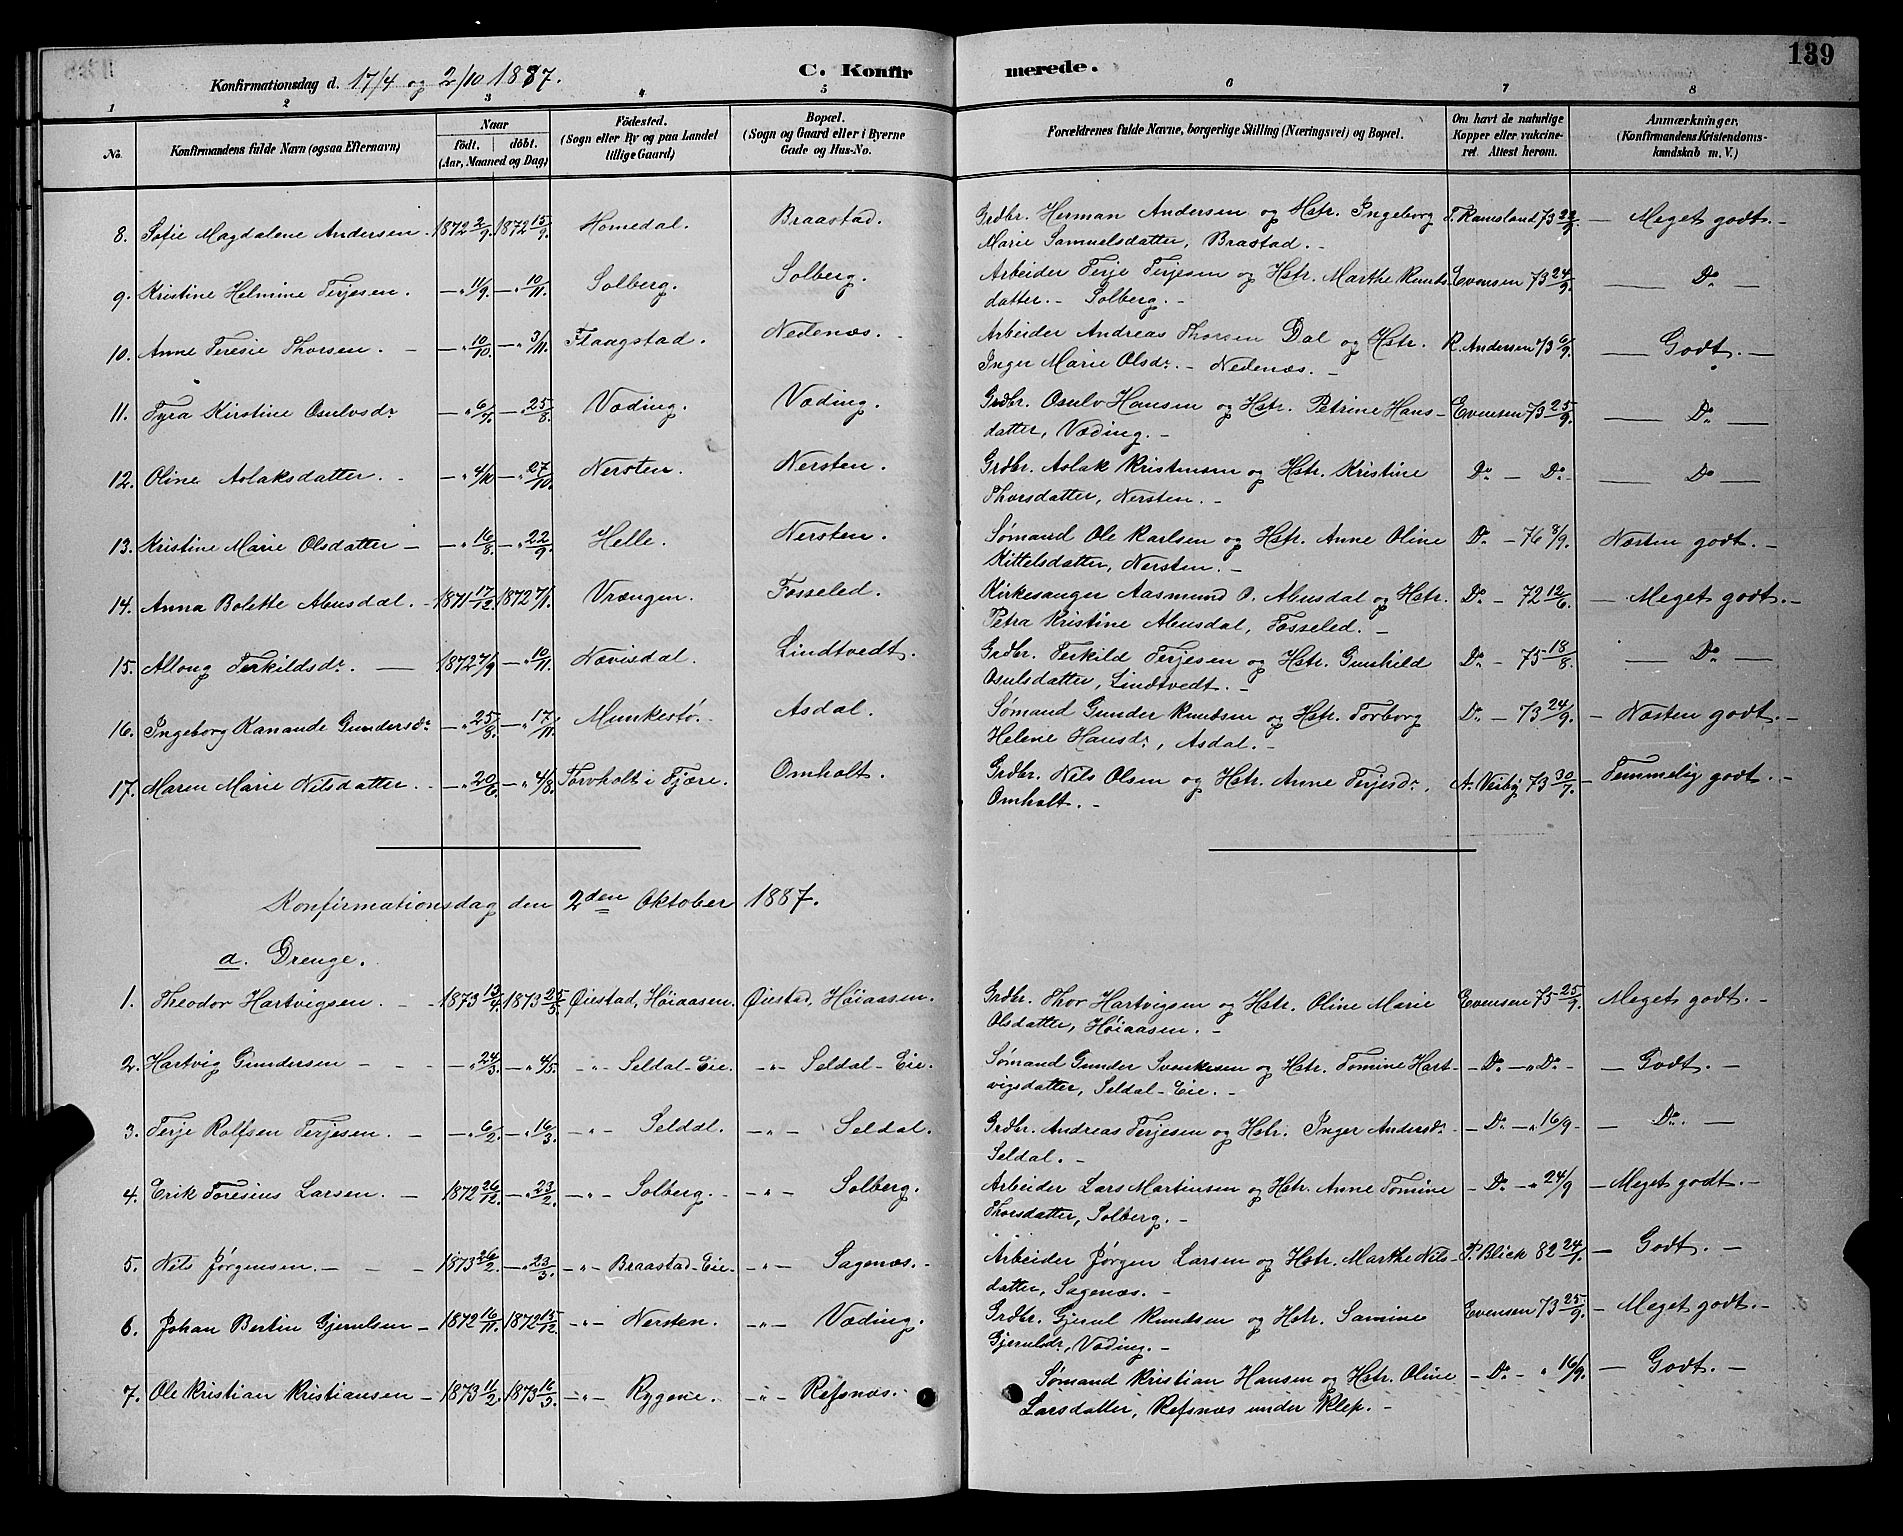 139
Konfirmationsdag d. 17/4 og 2/10 1887.
C. Konfirmerede.
1 2 3 4 5 6 7 8
No. Konfirmandens fulde Navn (ogsaa Efternavn) Naar født. døbt. (Aar, Maaned og Dag) Fødested. (Sogn eller By og paa Landet tillige Gaard) Bopæl. (Sogn og Gaard eller i Byerne Gade og Hus-No. Forældrenes fulde Navne, borgerlige Stilling (Næringsvei) og Bopæl. Om havt de naturlige Kopper eller vakcineret. Attest herom. Anmærkninger. (Konfirmandens Kristendomskundskab m. V.)
8. Sofie Magdalene Andersen. 1872 2/9. 1872 15/9. Homedal. Braastad. Grdbr. Herman Andersen og Hstr. Ingeborg T. Ramsland 73 22/9. — Meget godt. —
Marie Samuelsdatter, Brastad. —
9. Kristine Helmine Terjesen. —"— 11/9. —"— 10/11. Solberg. Solberg. Arbeider Terje Terjesen og Hstr. Marthe Knuds- Evensen 73 24/9. — Do —
datter. — Solberg. —
10. Anne Teresie Thorsen. — —"— 10/10. —"— 3/11. Flaagstad. Nedenæs. Arbeider Andreas Thorsen Dal og Hstr. R. Andersen 73 6/9. — Godt. —
Inger Marie Olsdr. — Nedenæs. —
11. Tyra Kirstine Osulvsdr —"— 6/7. —"— 25/8. Væding. Væding. Grdbr. Osulv Hansen og Hstr. Petrine Hans- Evensen 73 25/9. — Do —
datter, Væding. —
12. Oline Aslaksdatter. —"— 4/10 —"— 27/10. Nersten. Nersten. Grdbr. Aslak Kristensen og Hstr. Kristine Do — Do — — Do —
Thorsdatter, Nersten. —
13. Kristine Marie Olsdatter — —"— 16/8. —"— 22/9. Helle. Nersten. Sømand Ole Karlsen og Hstr. Anne Oline Do — 76 8/9. Næsten godt. —
Kittelsdatter, Nersten. —
14. Anna Bolette Abusdal. 1871 17/12. 1872 7/1. Vrængen. Fosseled. Kirkesanger Aasmund O. Abusdal og Hstr. Do — 72 12/6. — Meget godt. —
Petra Kristine Abusdal, Fosseled. —
15. Allong Terkildsdr. — 1872 7/9 —"— 10/11. Nævisdal. Lindtvedt. Grdbr. Terkild Terjesen og Hstr. Gunhild Do — 75 18/8. — Do —
Osulsdatter, Lindtvedt. —
16. Ingeborg Kanande Gundersdr —"— 25/8. —"— 17/11. Munkestø. Asdal. Sømand Gunder Knudsen og Hstr. Torborg Do — 73 24/9. — Næsten godt. —
Helene Hansdr, Asdal. —
17. Maren Marie Nilsdatter. —"— 20/6. —"— 4/8. Torvholt i Fjære. Omholt. Grdbr. Nils Olsen og Hstr. Anne Terjesdr, A. Veiby 73 30/7. — Temmelig godt. —
Omholt. —
Konfirmationsdag den 2den Oktober 1887.
a. Drenge.
1. Theodor Hartvigsen. — 1873 13/4. 1873 25/5. Øiestad, Høiaasen. Øiestad, Høiaasen. Grdbr. Thor Hartvigsen og Hstr. Oline Marie Evensen 75 25/9. Meget godt. —
Olsdatter, Høiaasen. —
2. Hartvig Gundersen — —"— 24/3. —"— 4/5. —"— Seldal-Eie. —"— Seldal-Eie. Sømand Gunder Svenkesen og Hstr. Tomine Hart- — Do —"— Do — — Godt. —
vigsdatter, Seldal-Eie. —
3. Terje Rolfsen Terjesen. — —"— 6/2. —"— 16/3. —"— Seldal. —"— Seldal. Grdbr. Andreas Terjesen og Hstr. Inger Andersdr — Do —"— 16/9 — — Do. —
Seldal. —
4. Erik Toresius Larsen. — 1872 26/12. —"— 23/2. —"— Solberg. —"— Solberg. Arbeider Lars Martinsen og Hstr. Anne Tomine — Do —"— 24/9 — Meget godt. —
Thorsdatter, Solberg. —
5. Nils Jørgensen. — — 1873 26/2. —"— 23/3. —"— Braastad-Eie. —"— Sagenæs. — Arbeider Jørgen Larsen og Hstr. Marthe Nils- P. Blick 82 24/1. — Godt. —
datter, Sagenæs. —
6. Johan Bertin Gjerulsen — 1872 16/11. 1872 15/12. —"— Nersten. —"— Væding. Grdbr. Gjerul Knudsen og Hstr. Samine Evensen 73 25/9. — Meget godt. —
Gjerulsdr, Væding. —
7. Ole Kristian Kristiansen — 1873 11/2. 1873 16/3. —"— Rygene. —"— Refsnæs. Sømand Kristian Hansen og Hstr. Oline — Do — " 16/9. — Godt. —
Larsdatter, Refsnæs under Klep. —